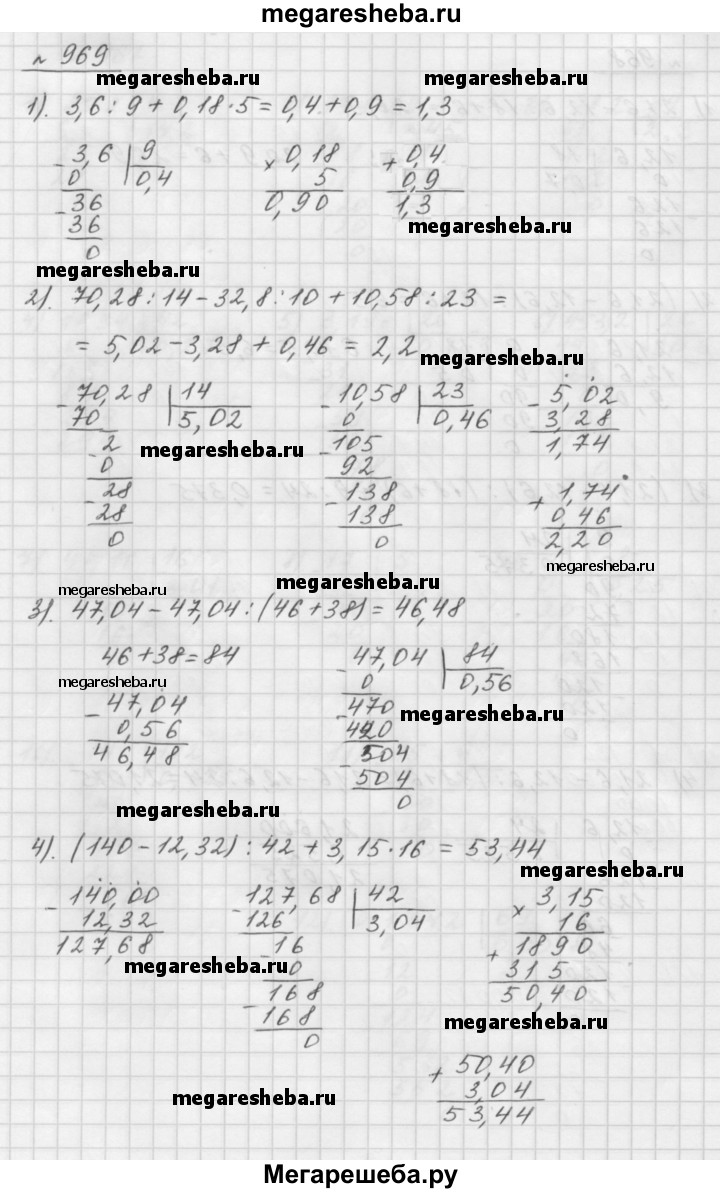 megaresheba.ru
№ 969
megaresheba.ru megaresheba.ru
1). 3,6 : 9 + 0,18 · 5 = 0,4 + 0,9 = 1,3
- 3,6 | 9 × 0,18 + 0,4
0 | 0,4 5 0,9
- 36 0,90 1,3
36 megaresheba.ru
0
megaresheba.ru
2). 70,28 : 14 - 32,8 : 10 + 10,58 : 23 =
= 5,02 - 3,28 + 0,46 = 2,2
megaresheba.ru
- 70,28 | 14 - 10,58 | 23 - 5,02
70 | 5,02 0 | 0,46 3,28
- 2 megaresheba.ru - 105 1,74
0 92
- 28 - 138 + 1,74
28 138 0,46
0 0 2,20
megaresheba.ru
megaresheba.ru megaresheba.ru
3). 47,04 - 47,04 : (46 + 38) = 46,48
46 + 38 = 84 - 47,04 | 84
megaresheba.ru 0 | 0,56
- 47,04 - 470
0,56 420 megaresheba.ru
46,48 - 504
504
0
megaresheba.ru
4). (140 - 12,32) : 42 + 3,15 · 16 = 53,44
megaresheba.ru
- 140,00 - 127,68 | 42 × 3,15
12,32 126 | 3,04 16
127,68 - 16 + 1890
megaresheba.ru 0 315
- 168 50,40
168 megaresheba.ru
0
+ 50,40
megaresheba.ru 3,04
53,44
Мегарешеба.ру